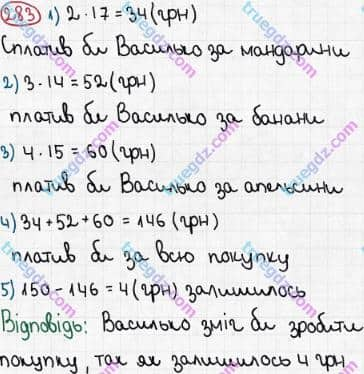 283 1) 2 · 17 = 34 (грн)
Сплатив би Василько за мандарини
2) 3 · 14 = 52 (грн)
платив би Василько за банани
3) 4 · 15 = 60 (грн)
платив би Василько за апельсини
4) 34 + 52 + 60 = 146 (грн)
платив би за всю покупку
5) 150 - 146 = 4 (грн) залишилось
Відповідь: Василько зміг би зробити
покупку, так як залишилось 4 грн.
truegdz.com